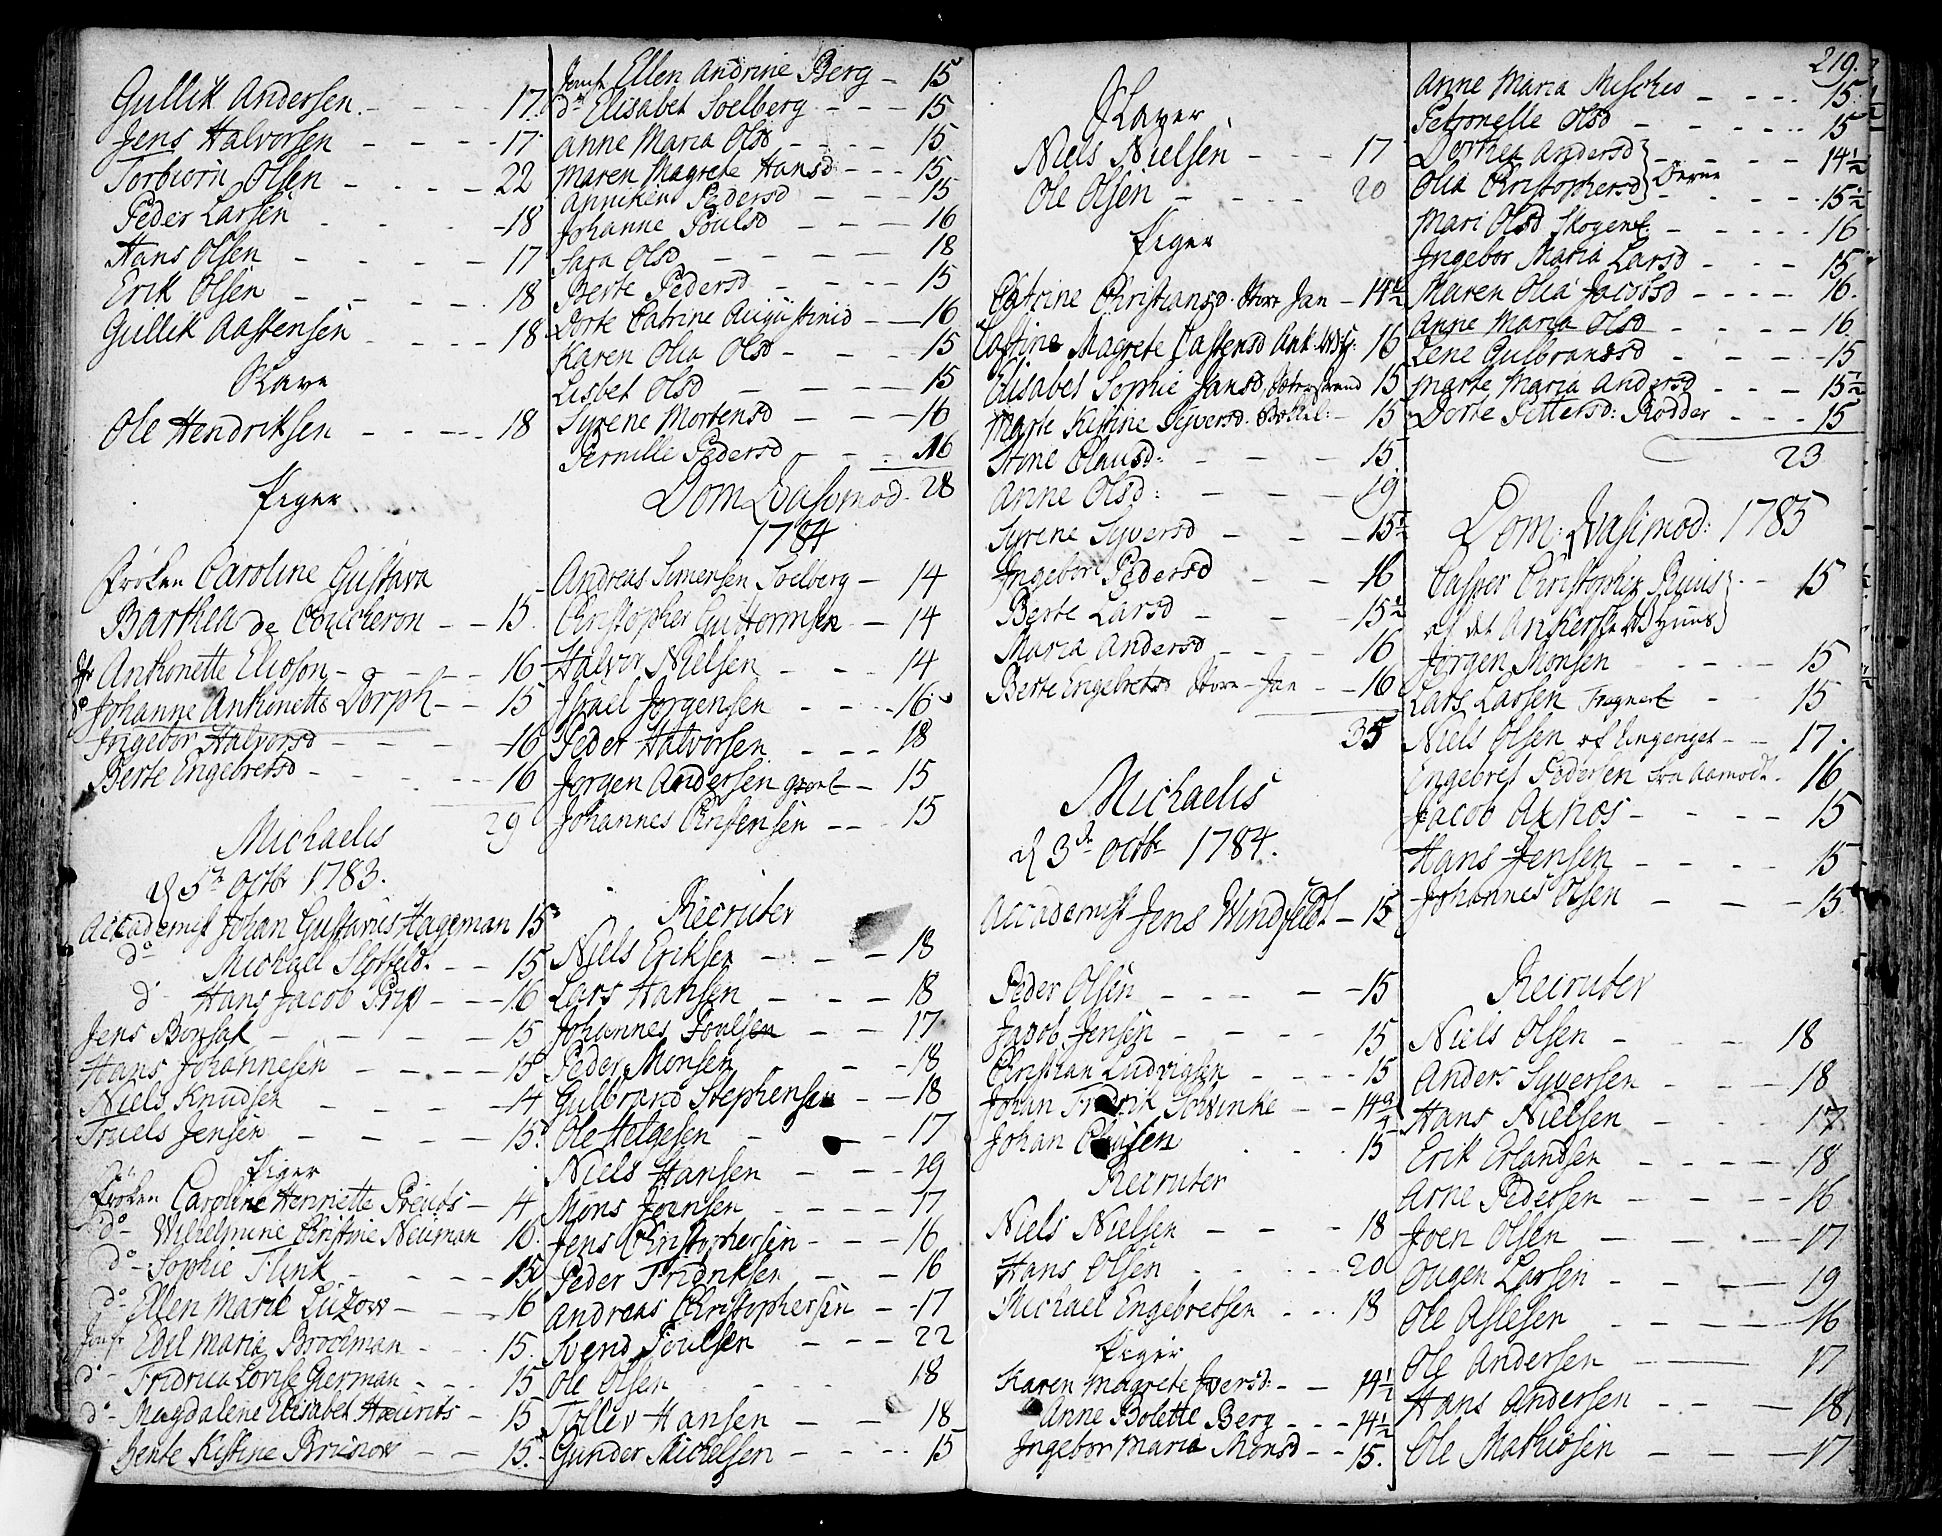 Gullik Andersen - - - 17
Jens Halvorsen - - - 17
Torbiörn Olsen - - - 22
Peder Larsen - - - 18
Hans Olsen - - - 17
Erik Olsen - - - 18
Gullik Aastensen - - - 18
Slave
Ole Hendriksen - - - 18
Piger
Frøken Caroline Gustava
Barthea de Coucheron - - 15
Jfr Anthonette Elieson - - - 16
do Johanne Anthonette Dorph - - 15
Ingebor Halvorsd - - - 16
Berte Engebretsd - - - 16
29
Michaelis
d 5te Octbr 1783.
Accademist Johan Gustavus Hageman 15
do Michael Slotfeldt - - 15
do Hans Jacob Prip - - - 16
Jens Bonsak - - - 15
Hans Johannesen - - - 15
Niels Knudsen - - - 14
Truels Jensen - - - 15
Piger
Frøken Caroline Henriette Preuds - 14
do - Wilhelmine Christine Neuman 16
do - Sophie Flink - - - 15
do - Ellen Marie Luzow - - - 16
Jomfr Edel Maria Brochman - - 15
do - Fridrica Lovise German - - - 15
do - Magdalene Elisabet Haurits - 15
Bente Kistine Brunow - - 15
Jomfr Ellen Andrine Berg - 15
do Elisabet Soelberg - - - 15
Anne Maria Olsd - - - 15
Maren Magrete Hansd - - - 15
Anniken Pedersd - - - 15
Johanne Poulsd - - - 16
Sara Olsd - - - 18
Berte Pedersd - - - 15
Dorte Catrine Augustinid - - 16
Karen Olia Olsd - - - 15
Lisbet Olsd - - - 15
Syrene Mortensd - - - 16
Pernille Pedersd - - - 16
Dom Qvasimod. 28
1784
Andreas Simensen Soelberg - 14
Christopher Guttormsen - 14
Halvor Nielsen - - - 14
Israel Jørgensen - - - 16
Peder Halvorsen - - - 18
Jørgen Andersen - 15
Johannes Christensen - - - 15
Recruter
Niels Eriksen - - - 18
Lars Hansen - - - 18
Johannes Poulsen - - - 17
Peder Monsen - - - 18
Gulbrand Stephensen - - 18
Ole Helgesen - - - 17
Niels Hansen - - - 19
Mons Joensen - - - 17
Jens Christophersen - - - 16
Peder Fridriksen - - - 16
Andreas Christophersen - - 17
Svend Poulsen - - - 22
Ole Olsen - - - 18
Tollev Hansen - - - 18
Gunder Michelsen - - - 15
Slaver
Niels Nielsen - - - 17
Ole Olsen - - - 20
Piger
Catrine Christiansd. Store Jan - 14½
Castine Magrete Castensd Ank: 16
Elisabet Sophie Jansd. 15
Marte Kistine Syversd. - 15
Stine Clausd: - - - 15
Anne Olsd: - - - 19
Syrene Syversd - - - 15½
Ingebor Pedersd - - 16
Berte Larsd - - - 15½
Maria Andersd - - - 16
Berte Engebretsd Store-Jan - - 16
35
Michaelis
d 3de Octbr 1784.
Accademist Jens Windfeldt - 15
Peder Olsen - - - 15
Jacob Jensen - - - 15
Christian Ludvigsen - - - 15
Johan Fridrik Schwinke - - 14¾
Johan Clausen - - - 15
Recruter
Niels Nielsen - - - 18
Hans Olsen - - - 20
Michael Engebretsen - - - 18
Piger
Karen Magrete Iversd: - - 14½
Anne Bolette Berg - - - 14½
Ingebor Maria Monsd - - 15.
219.
Anne Maria Mischeo - - - 15½
Petronelle Olsd - - - 15
Dorthea Andersd - - - 14½
Olia Christophersd - - - 15½
Mari Olsd Skogent - - - 16
Ingebor Maria Larsd - - - 15
Maren Olia Jacobsd - - - 16.
Anne Maria Olsd - - - 16
Lene Gulbransd - - - 15
Marte Maria Andersd - - - 15½
Dorte Pettersd: Rødder - - - 15
23
Dom: Qvasimod: 1785
Casper Christopher Ruus - 15
af det Ankerske W Huus
Jørgen Monsen - - - 15
Lars Lassen - - 15
Niels Olsen af - - 17.
Engebret Pedersen fra Aamodt. 16
Jacob Axnæs - - - 15
Hans Jensen - - - 15
Johannes Olsen - - - 15
Recruter
Niels Olsen - - - 18
Anders Syversen - - - 18
Hans Nielsen - - - 17
Erik Erlandsen - - - 18
Arne Pedersen - - - 16
Joen Olsen - - - 17
Ougen Larsen - - - 19
Ole Aslesen - - - 16
Ole Andersen - - - 17
Hans Andersen - - - 18
Ole Mathiesen - - - 17